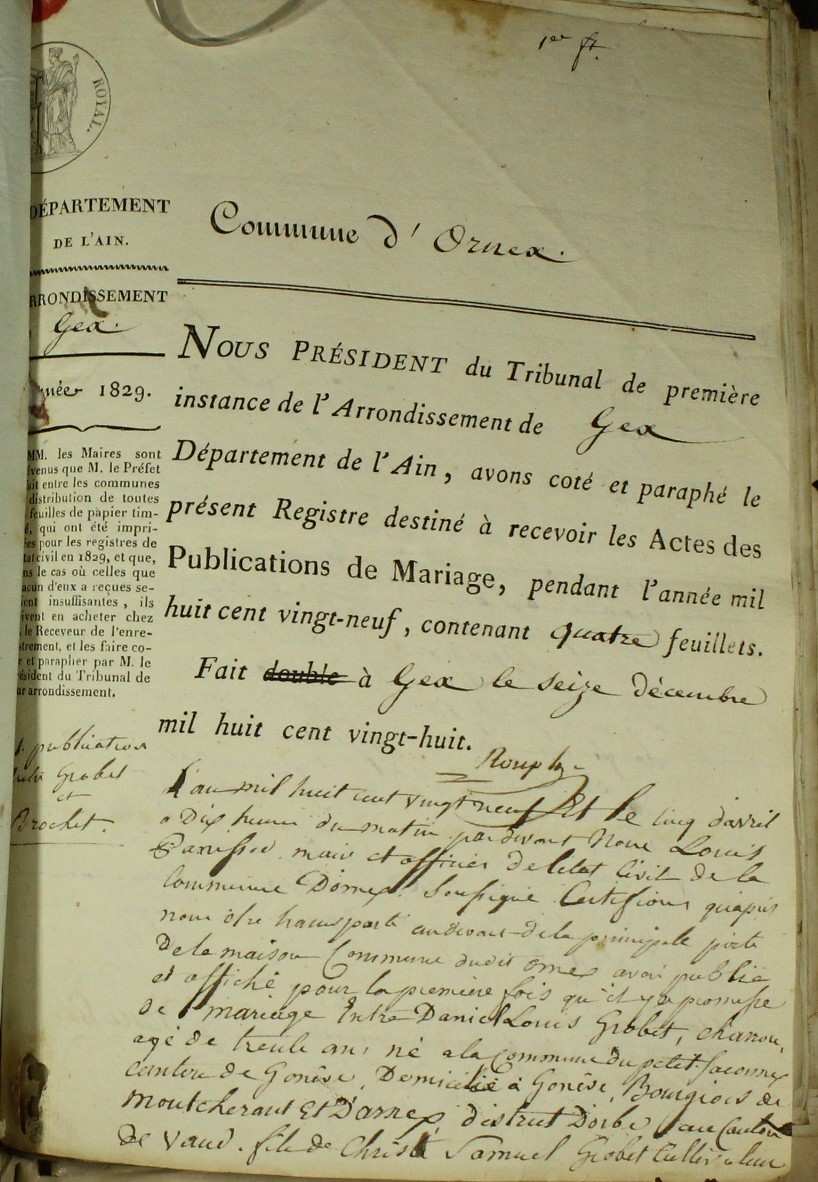 1er ft.
ROYAL.
DÉPARTEMENT
DE L'AIN.
ARRONDISSEMENT
Gex.
Année 1829.
MM. les Maires sont
venus que M. le Préfet
ait entre les communes
distribution de toutes
feuilles de papier tim-
é, qui ont été impri-
ées pour les registres de
tat civil en 1829, et que,
ns le cas où celles que
acun d'eux a reçues se-
ient insuffisantes, ils
ivent en acheter chez
le Receveur de l'enre-
strement, et les faire co-
r et parapher par M. le
ésident du Tribunal de
ur arrondissement.
Commune d'Ornex.
NOUS PRÉSIDENT du Tribunal de première
instance de l'Arrondissement de Gex
Département de l'Ain, avons coté et paraphé le
présent Registre destiné à recevoir les Actes des
Publications de Mariage, pendant l'année mil
huit cent vingt-neuf, contenant quatre feuillets.
Fait double à Gex le seize décembre
mil huit cent vingt-huit.
publication
Grobet
et
Brochet.
L'an mil huit cent vingt neuf Et le cinq d'avril
a Dix heures du matin par devant Nous Louis
maire et officier de l'état Civil de la
Commune Dornex Soussigné Certifions qu'apres
nous être transporté audevant de la principale porte
De la maison Commune dudit ornex avoir publié
et affiché pour la premiere fois qu'il y a promesse
de mariage Entre Daniel Louis Grobet, charon,
agé de trente ans né a la Commune du petit Saconnex
canton de Genêve, Domicilié à Genêve, Bourgeois de
Montcherant Et D'arnex, district Dorbe au Canton
de Vaud. fils de Samuel Grobet Cultivateur